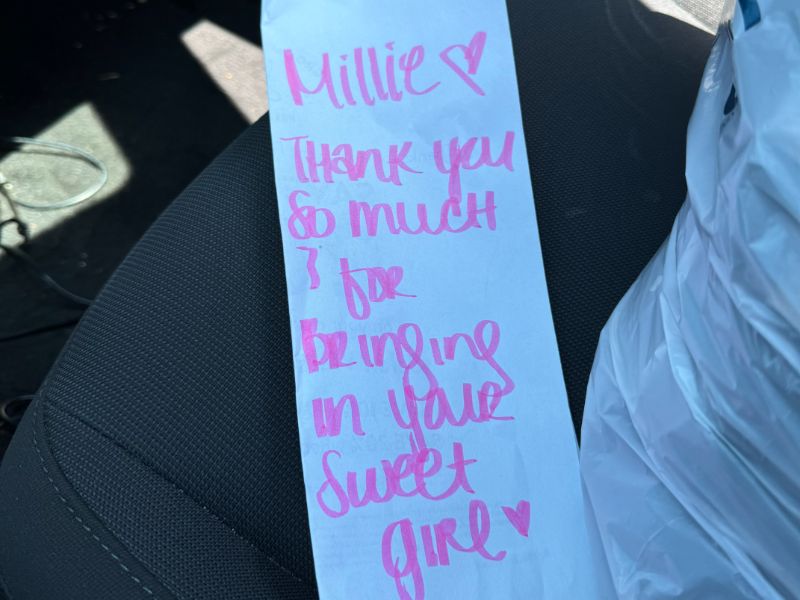 Millie ♡
THank you
so mucH
& for
bringing
in your
sweet
girl ♥